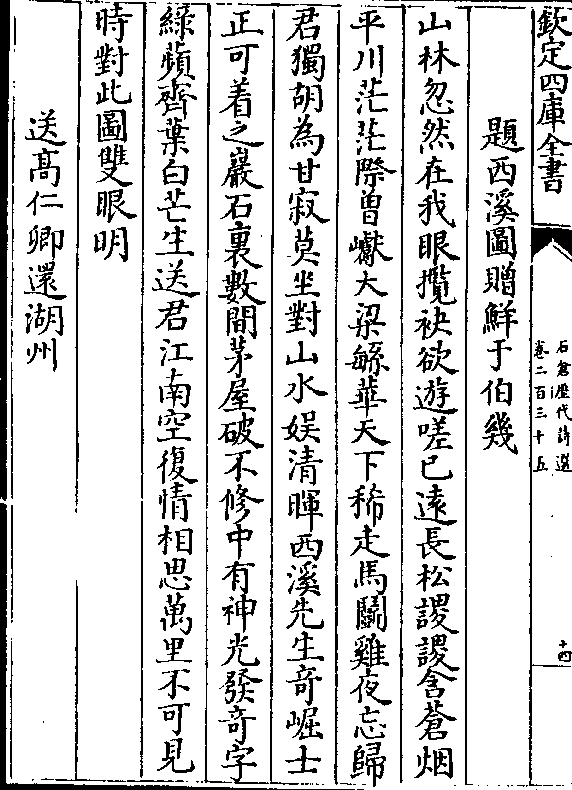 欽定四庫全書
石倉歷代詩選
卷二百三十五
十四
題西溪圖贈鮮于伯幾
山林忽然在我眼攬袂欲遊嗟已遠長松謖謖含蒼烟
平川茫茫際曾巘大梁緐華天下稀走馬鬬雞夜忘歸
君獨胡為甘寂莫坐對山水娱清暉西溪先生竒崛士
正可着之巖石裏數間茅屋破不修中有神光發竒字
綠蘋齊葉白芒生送君江南空復情相思萬里不可見
時對此圖雙眼明
送髙仁卿還湖州